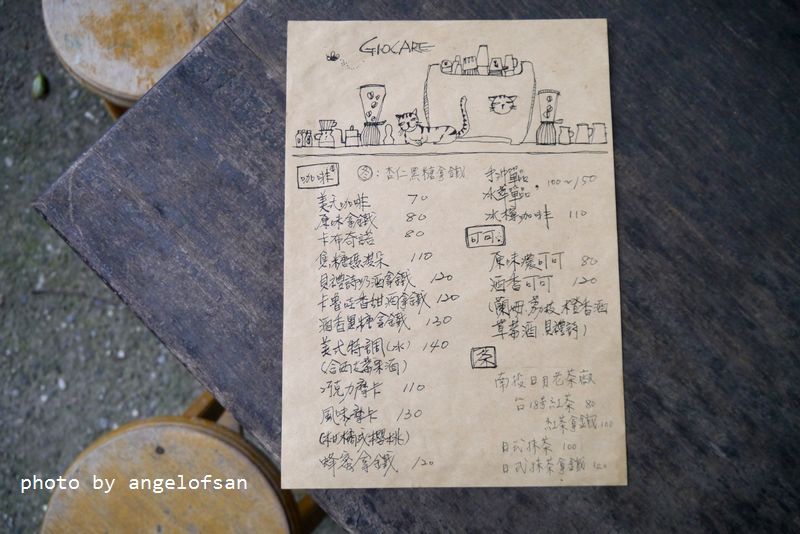 GIOCARE
咖啡
冬:杏仁黑糖拿鐵
美式咖啡 70
原味拿鐵 80
卡布奇諾 80
焦糖瑪奇朵 110
貝禮詩奶酒拿鐵 120
卡魯哇香甜酒拿鐵 120
酒香黑糖拿鐵 130
美式特調(冰) 140
(含西打蘋果酒)
巧克力摩卡 110
風味摩卡 130
(柑橘或櫻桃)
蜂蜜拿鐵 120
手沖單品
冰滴單品 100~150
冰檸咖啡 110
可可
原味濃可可 80
酒香可可 120
(蘭姆、荔枝、橙香酒
草莓酒、貝禮詩)
茶
南投日月老茶廠
台18號紅茶 80
紅茶拿鐵 100
日式抹茶 100
日式抹茶拿鐵 120
photo by angelofsan